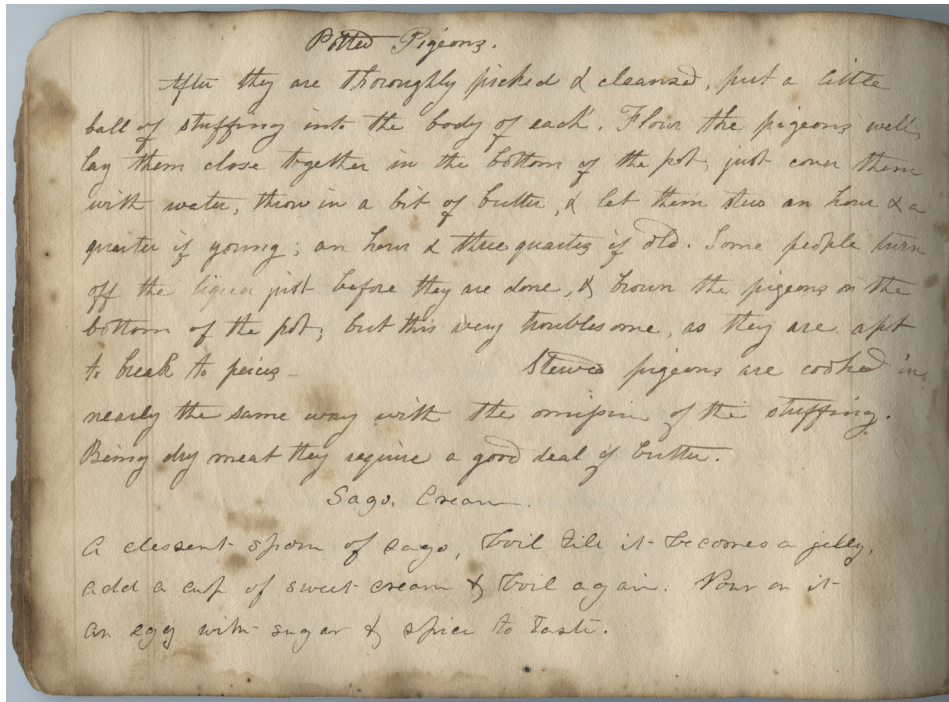 Potted Pigeons.
After they are thoroughly picked & cleansed, put a little
ball of stuffing into the body of each. Flour the pigeons well,
lay them close together in the bottom of the pot, just cover them
with water, throw in a bit of butter, & let them stew an hour & a
quarter if young; an hour & three quarters if old. Some people turn
off the liquor just before they are done, & brown the pigeons on the
bottom of the pot; but this very troublesome, as they are apt
to break to peices - Stewed pigeons are cooked in
nearly the same way with the omission of the stuffing.
Being dry meat they require a good deal of butter.
Sago. Cream.
A dessent spoon of sago, boil till it becomes a jelly,
add a cup of sweet cream & boil again. Pour on it
an egg with sugar & spice to taste.